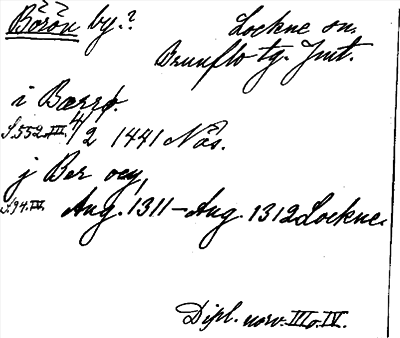 Börön by.? Lockne sn.
Brunflo tg. Jmt.
i Bærø.
S. 552. III. 4/2 1441 Näs.
j Ber oey,
S. 94. IV. Aug. 1311 – Aug. 1312 Lockne.
Dipl. norv. III o. IV.